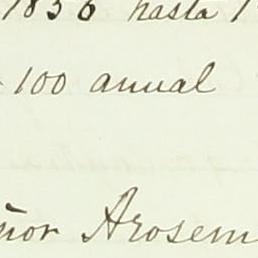 1836 hasta 1
100 anual
ñor Arosem